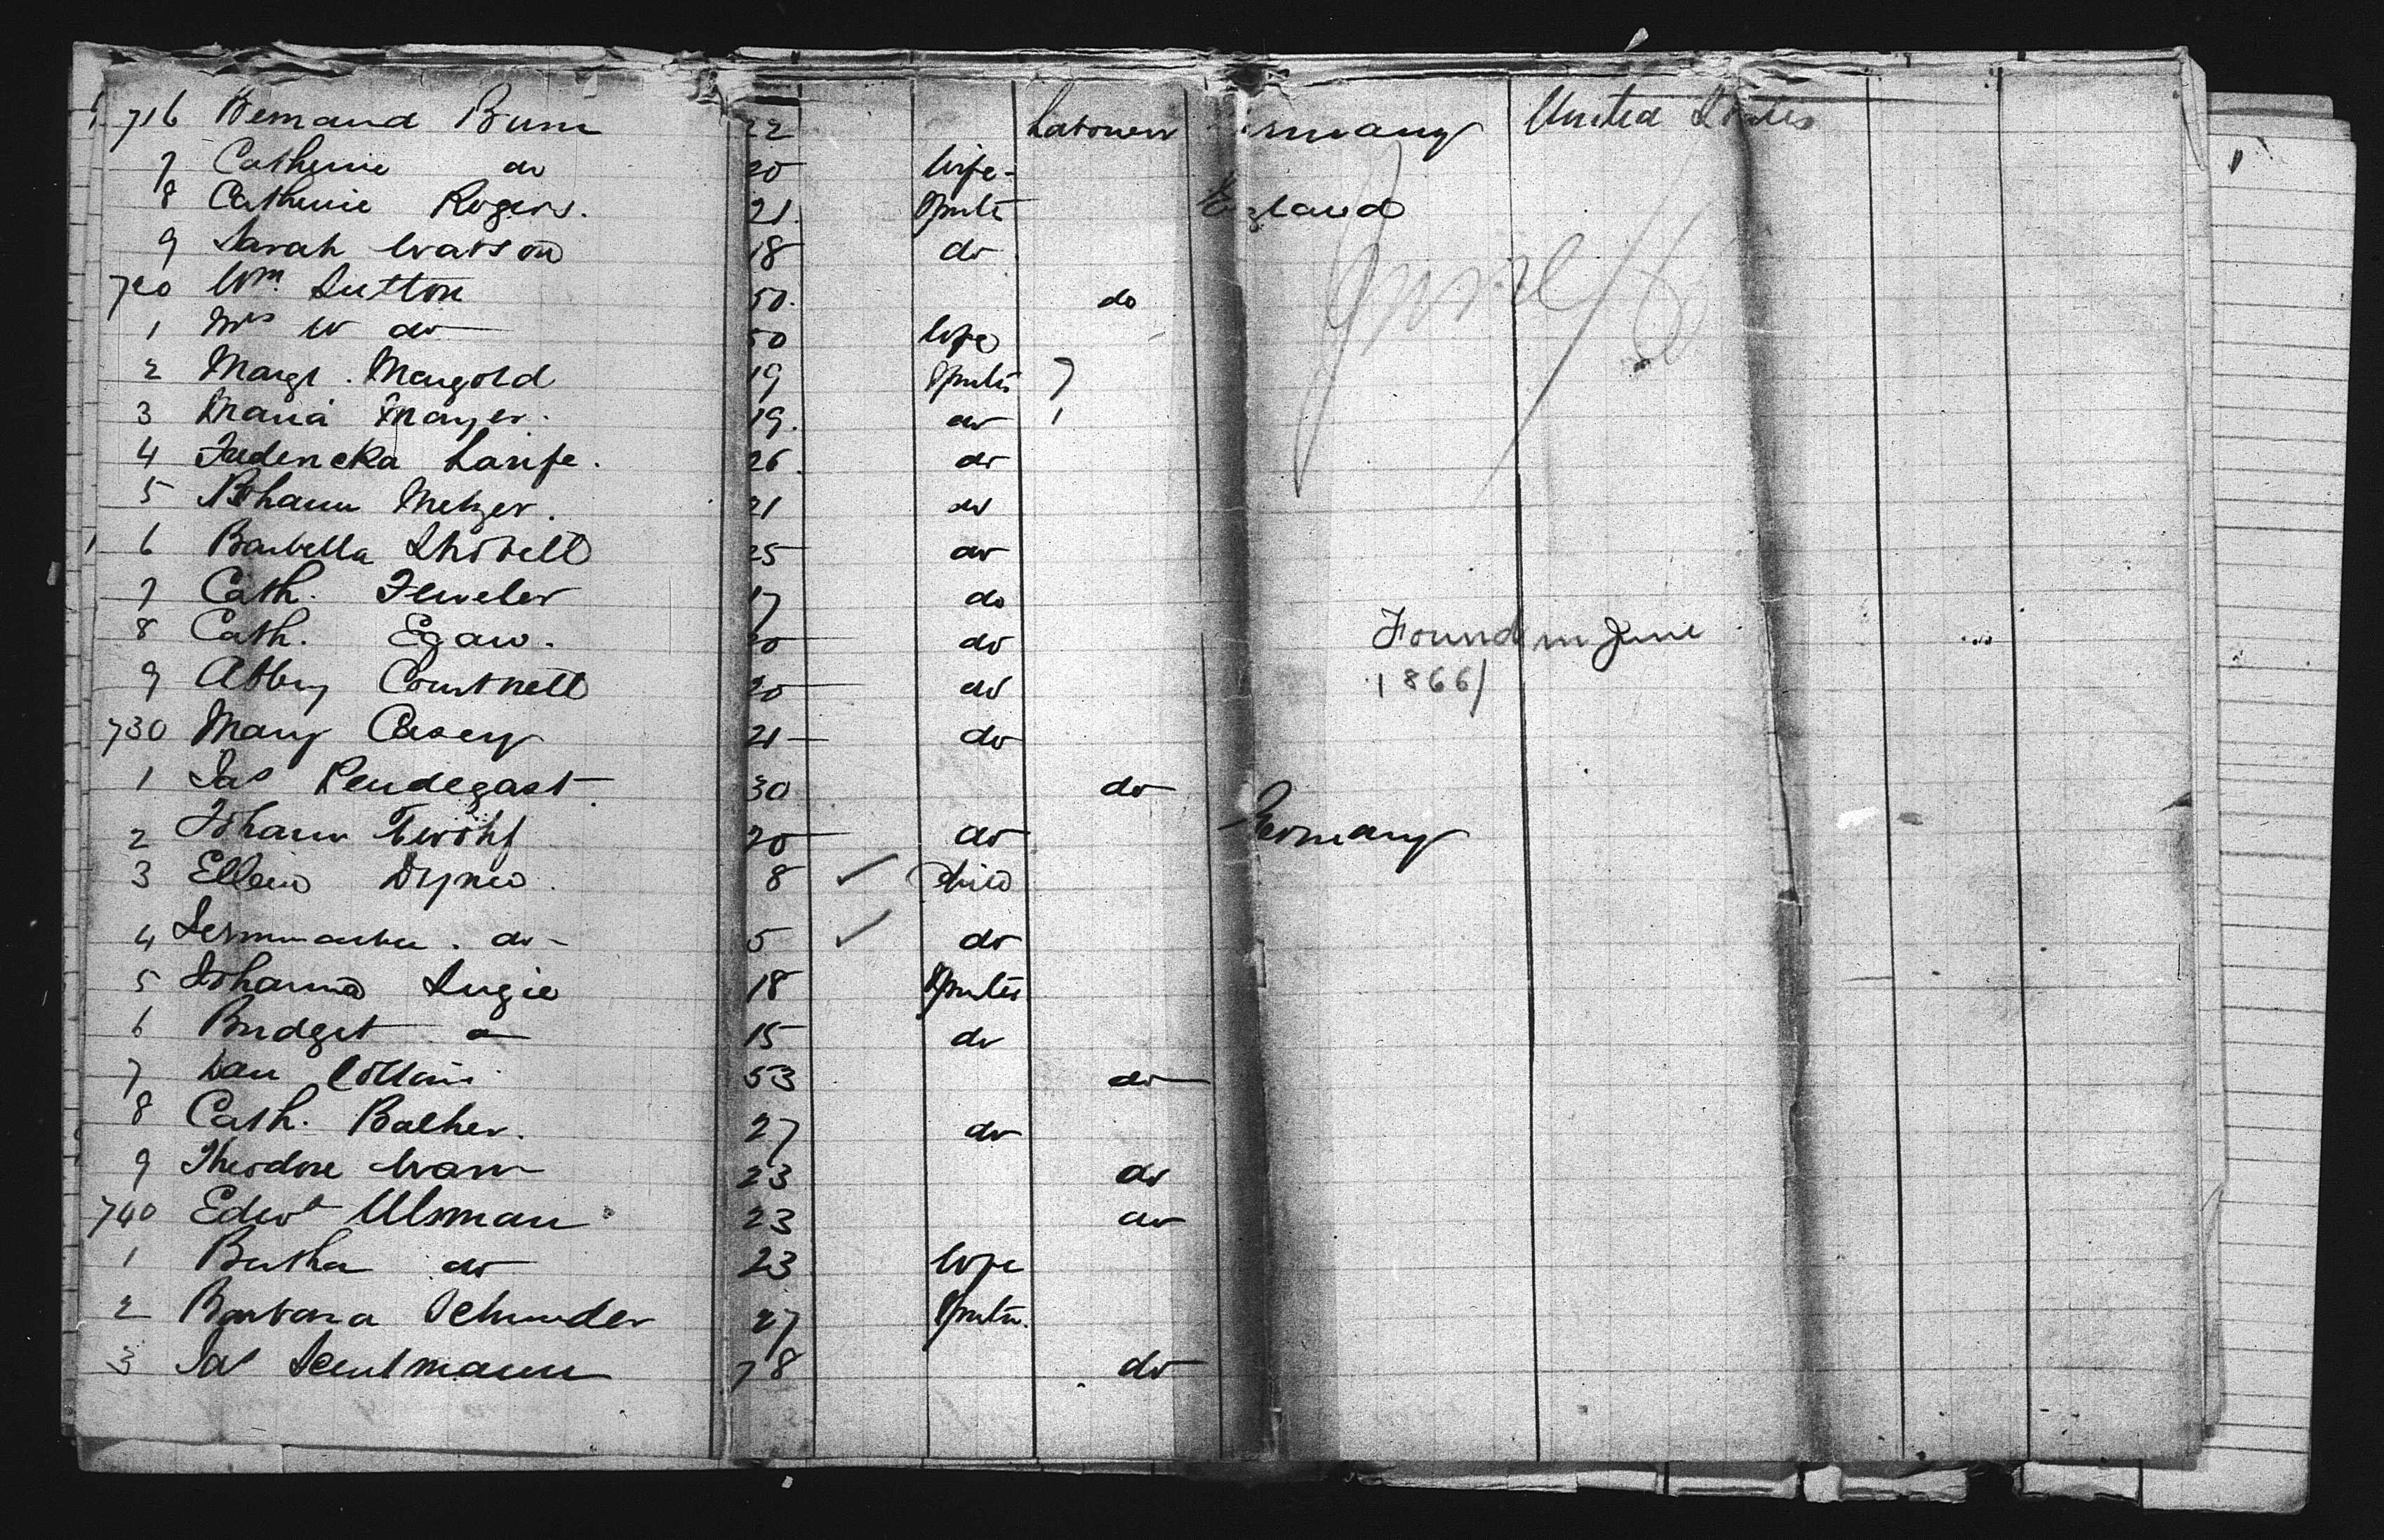 716 Bernard Bum 22 Labourer Germany United States
7 Catherine do 20 Wife
8 Catherine Rogers. 21. Spinster England
9 Sarah Watson 18 do
720 Wm Sutton 50. do
1 Mrs W do 50 Wife
2 Margt. Mangold 19 Spinster
3 Maria Mayer. 19. do
4 Fredericka 26. do
5 Johann Metzer. 21 do
6 Barbella 25 do
7 Cath. 17 do
8 Cath. Egan. 20 do
Found in June
9 Abby Courtnell 20 do
1866/
730 Mary Casey 21 do
1 Jas Pendegast 30 do
2 Johann 20 do Germany
3 Ellen 8 ✓ Child
4 do 5 ✓ do
5 Johanna Lugie 18 Spinster
6 Bridget do 15 do
7 Dan 53 do
8 Cath. Balher. 27 do
9 Theodore 23 do
740 Edwd Ulsman 23 do
1 Bertha do 23 Wife
2 Barbara 27 Spinster
3 Jas 78 do
June /66